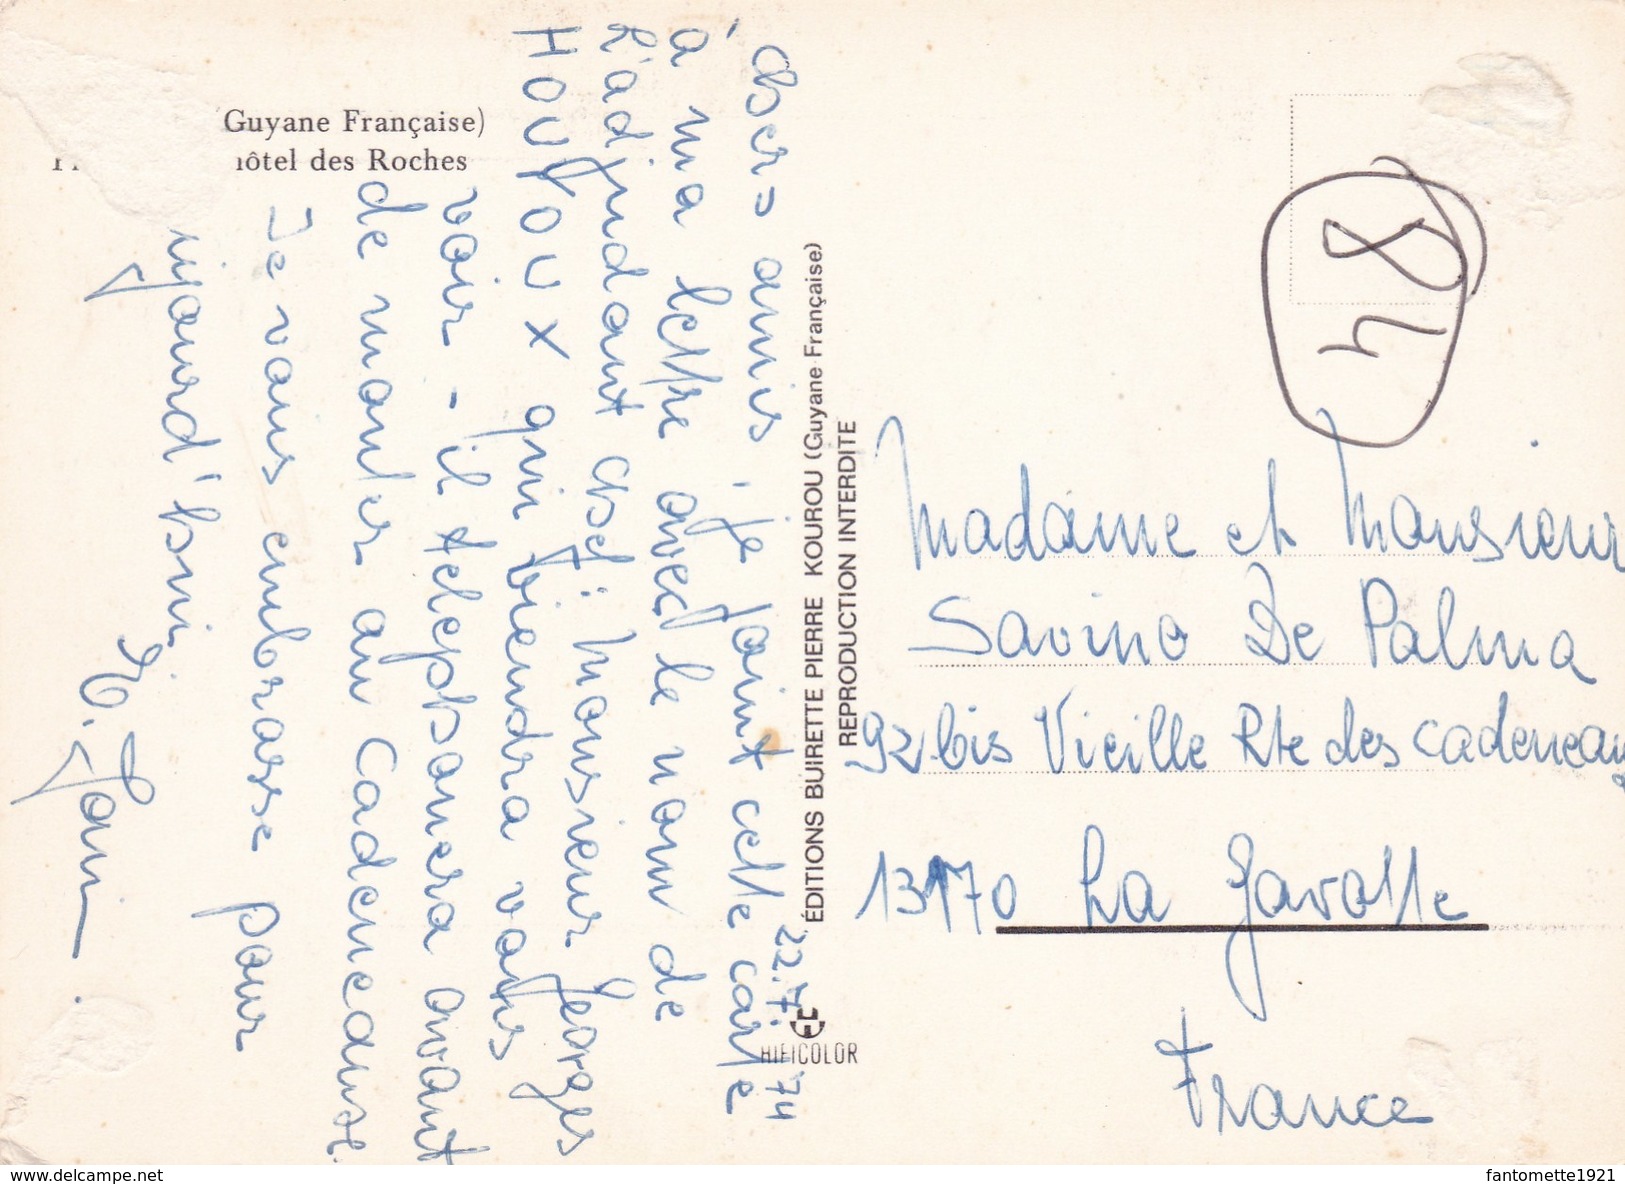 Guyane Française)
hôtel des Roches
22.7.74
Chers amis, je joint cette carte
à ma lettre avec le nom de
L'adjudant chef: Monsieur Georges
HOUVOUX qui viendra vous
voir - il telephonera avant
de monter au Cadeneaux.
Je vous embrasse pour
ujourd'hui
ÉDITIONS BUIRETTE PIERRE KOUROU (Guyane Française)
REPRODUCTION INTERDITE
HIFICOLOR
84
Madame et Monsieur
Savino De Palma
92 bis Vieille Rte des Cadeneaux
13170 La Gavotte
France
www.delcampe.net
fantomette1921